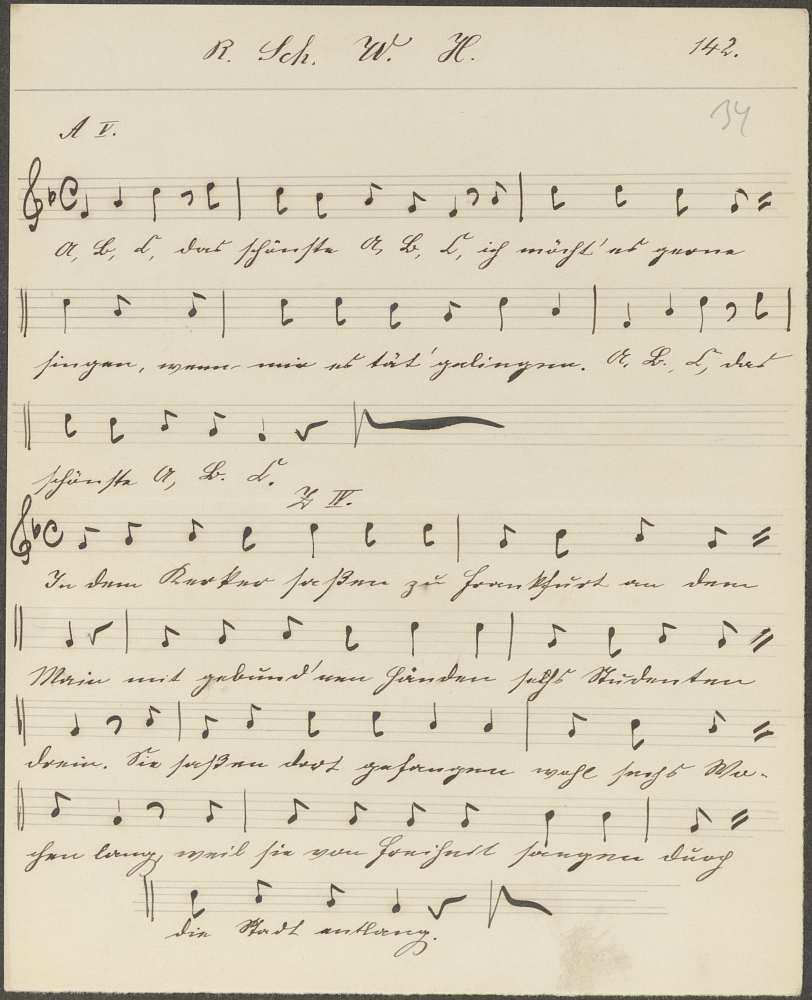 R. Sch. W. H. 142.
34
A V.
A, B, C, das schönste A, B, C, ich möcht' es gerne
singen, wenn mir es tät' gelingen. A, B, C, das
schönste A, B, C.
Z IV.
In dem Kerker saßen zu Frankfurt an dem
Main mit gebund'nen Händen sechs Studenten
drein. Sie saßen dort gefangen wohl sechs Wo-
chen lang, weil sie von Freiheit sangen durch
die Stadt entlang.